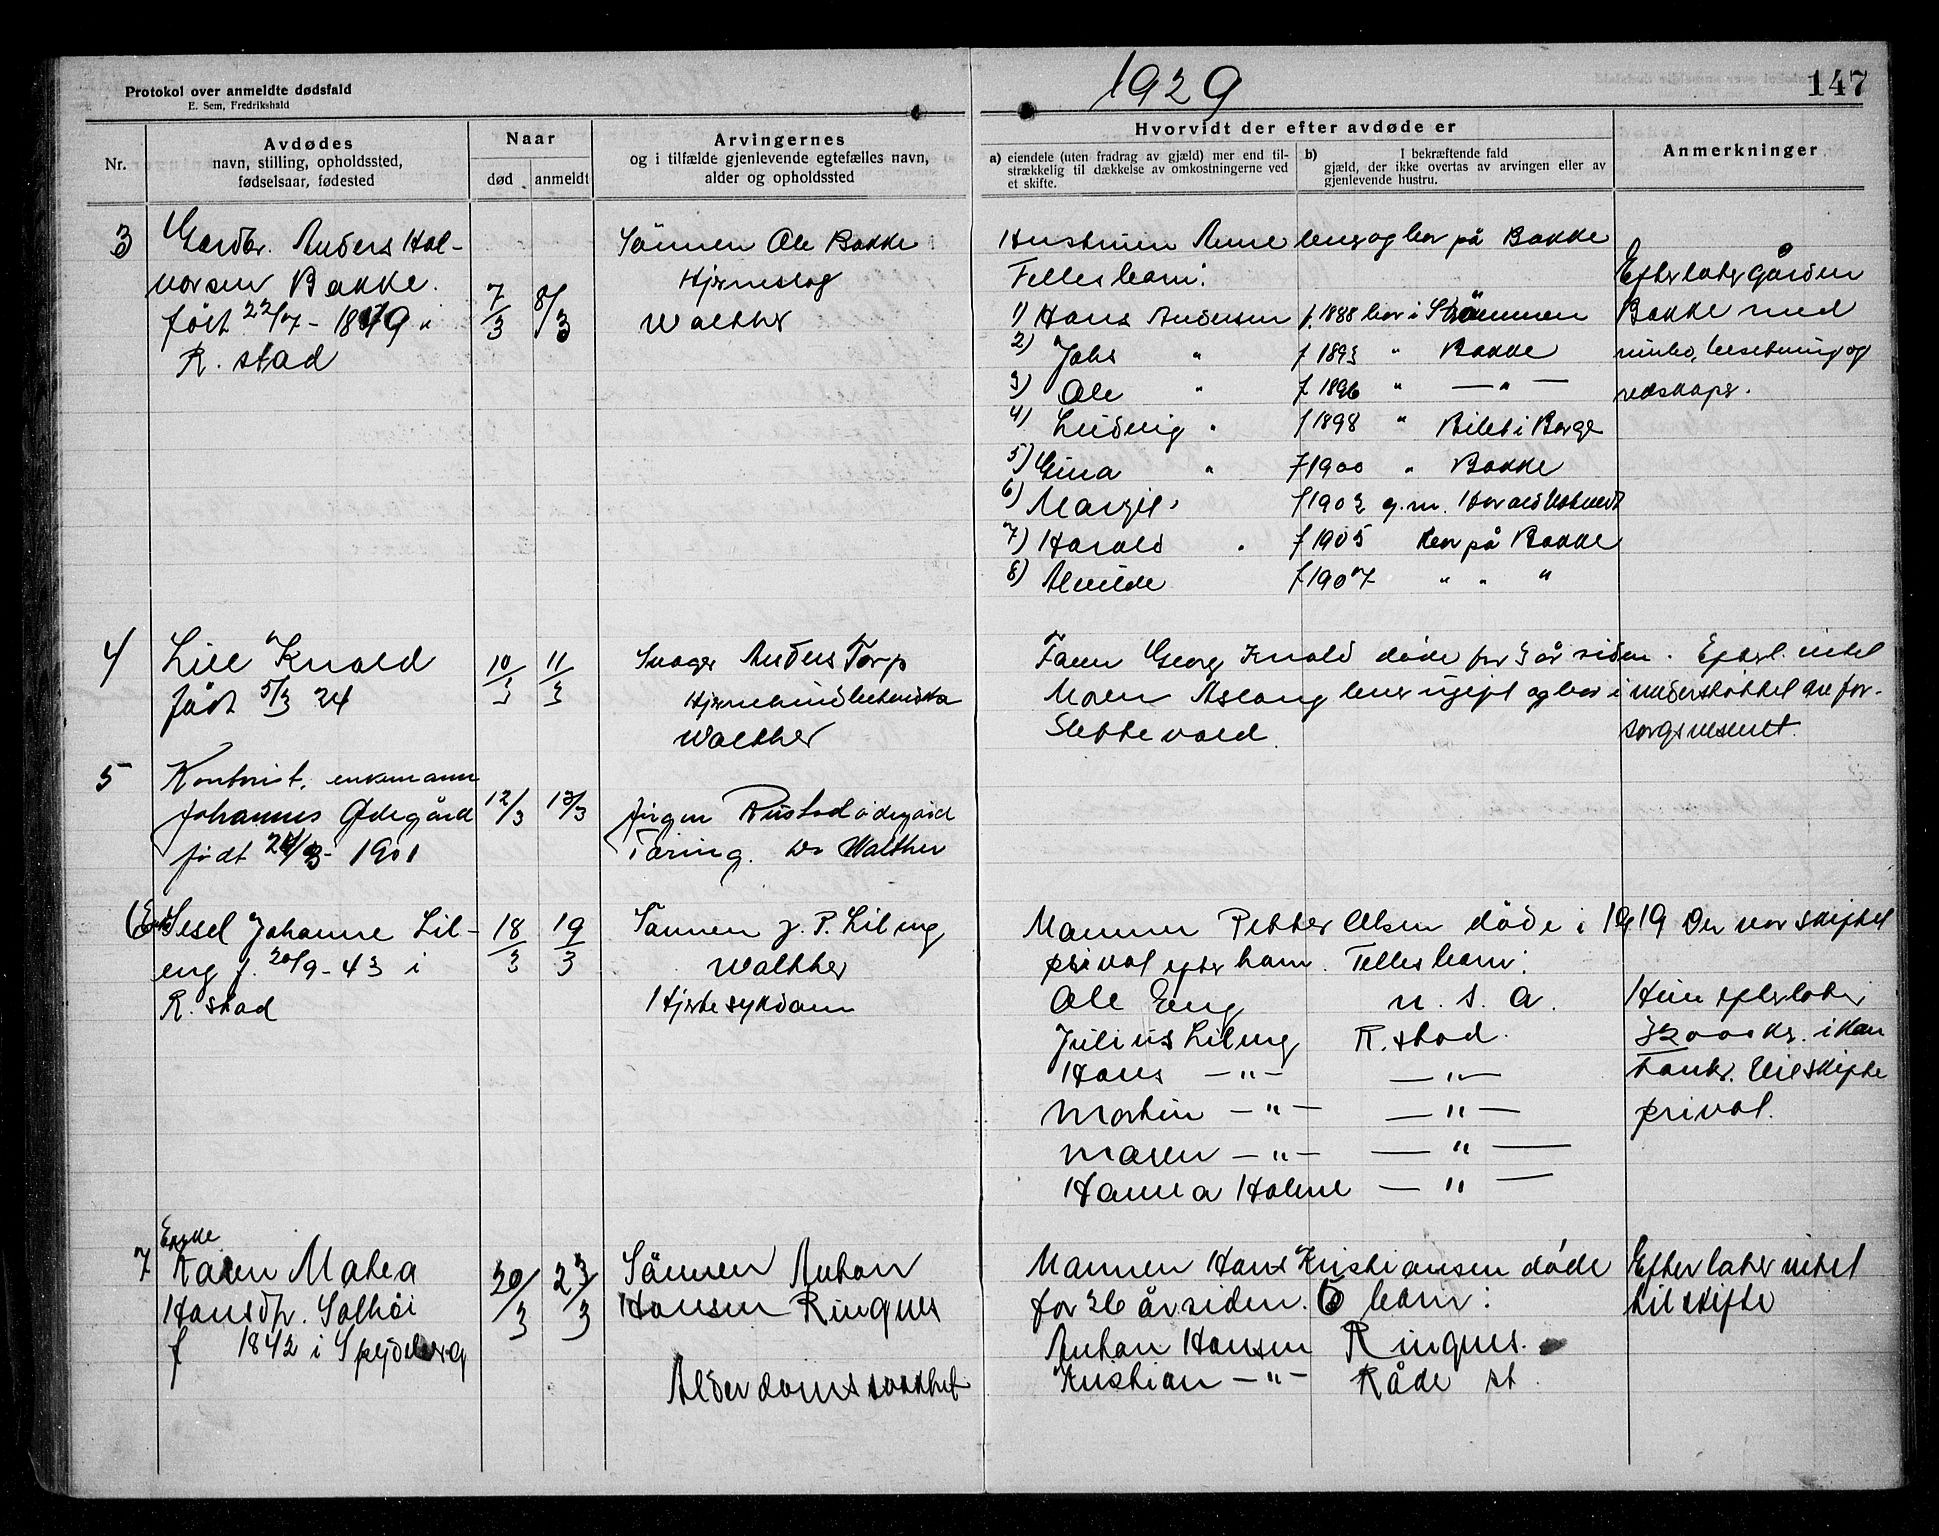 1929
147
Protokol over anmeldte dødsfald
E. Sem, Fredrikshald
Nr.
Avdødes
navn, stilling, opholdssted,
fødselsaar, fødested
Naar
død
anmeldt
Arvingernes
og i tilfælde gjenlevende egtefælles navn,
alder og opholdssted
Hvorvidt der efter avdøde er
a) eiendele (uten fradrag av gjæld) mer end til-
strækkelig til dækkelse av omkostningerne ved
et skifte.
b) I bekræftende fald
gjæld, der ikke overtas av arvingen eller av
gjenlevende hustru.
Anmerkninger
3
Gardbr. Anders Hal-
vorsen Bakke.
født 22/7 - 1849 i
R. stad
7/3
8/3
Sønnen Ole Bakke
Hjerneslag
Walther
Hustruen Anne lever og bor på Bakke
Fellesbarn:
1) Hans Andersen f. 1888 bor i Strømmen
2) Johs " f 1893 " Bakke
3) Ole " f 1896 " — " —
4) Ludvig " f 1898 " Bilet i Borge
5) Gina " f 1900 " Bakke
6) Margit " f 1902 g.m. Harald
7) Harald " f 1905 bor på Bakke
8) Alvilde f 1907 " " "
Efterlater gården
Bakke med
innbo, besetning og
redskaper.
4
Lill Knold
født 5/3 24
10/3
11/3
Svager Anders Torp
Walther
Faren Georg Knold døde for 3 år siden. Efterl. intet
Moren Aslaug lever ugift og bor i understøttet av for-
Slettevold.
sorgsvesenet.
5
Kontorist, enkemann
Johannes Ødegård
født 24/3 - 1901
12/3
13/3
Jørgen Rustad Ødegård
Tæring. Dr Walther
6
Enke Sesel Johanne Lil-
eng f. 20/9 - 43 i
R. stad
18/3
19/3
Sønnen J. P. Lileng
Walther
Hjertesykdom
Mannen Petter Olsen døde i 1919 Der var skiftet
privat efter ham. Fellesbarn:
Ole Eng U. S. A.
Julius Lileng R. stad.
Hans — " — — " —
Martin — " — — " —
Maren — " — — " —
Hanna Holene — " —
Hun efterlater
kr. i kon
tanter. Vil skifte
privat.
7
Enke
Karen Matea
Hansdtr. Solhöi
f 1842 i Spydeberg
20/3
23/3
Sönnen Anton
Hansen Ringnes
Alderdomssvakhet
Mannen Hans Kristiansen døde
for 36 år siden. 6 barn:
Anton Hansen Ringnes.
Kristian — " — Råde st.
Efterlater intet
til skifte